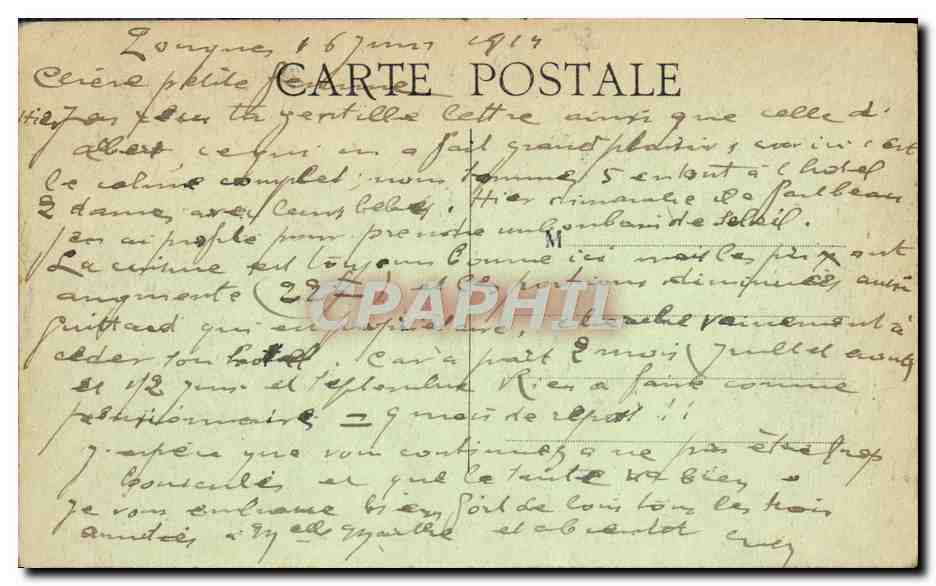 16 juin 191
Chère petite femme
CARTE POSTALE
Hier j'ai reçu ta gentille lettre ainsi que celle d'
Albert, ce qui m'a fait grand plaisir, car ici c'est
le calme complet, nous sommes 5 entout à l'hotel
2 dames avec leurs bébés. Hier dimanche il a fait beau
j'en ai profité pour prendre un bon bain de soleil.
M
La cuisine est toujours bonne ici mais les prix ont
augmenté (22 et les portions diminuées aussi
CPAPHIL
Guittard qui en, cherche vainement à
céder son hotel. Car à part 2 mois Juillet août
et 1/2 juin et septembre Rien à faire comme
pensionnaires = 9 mois de repos !!
J'espère que vous continuez à ne pas être trop
bousculés et que la santé va bien.
Je vous embrasse bien fort de loin tous les trois
amitiés à Melle Marthe et à bientot